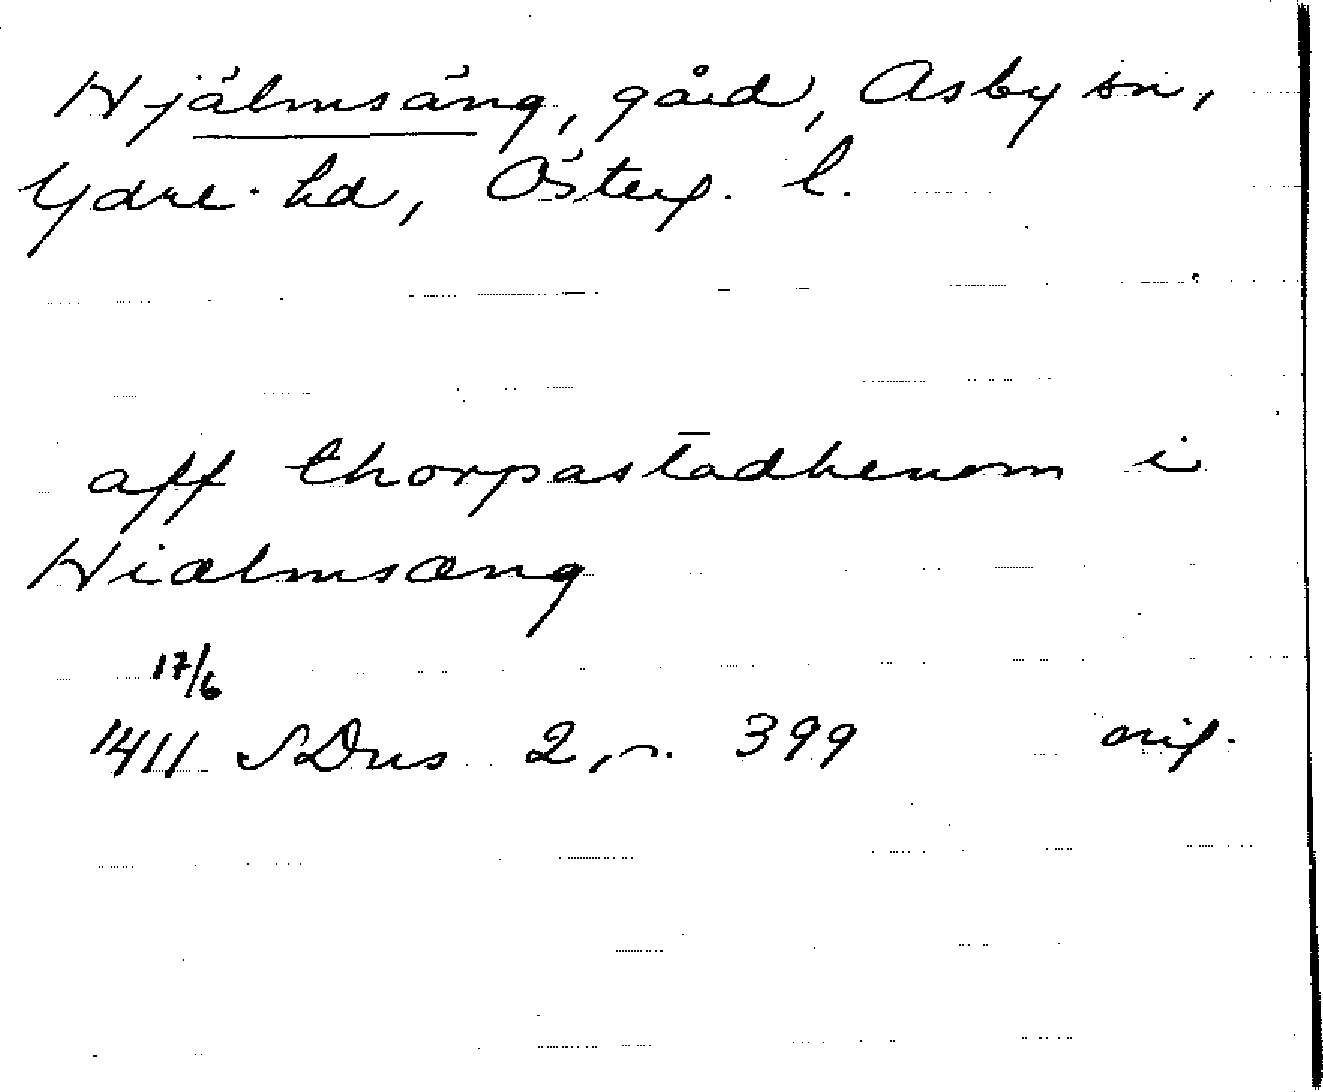 Hjälmsäng, gård, Asby sn,
Ydre hd, Österg. l.
aff thorpastadhenom i
Hiælmsæng
17/6
1411 SDns 2, s. 399 orig.